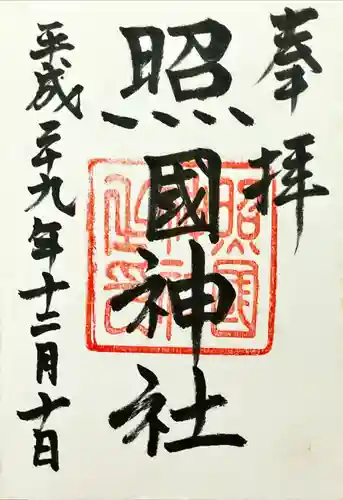 奉拝
照國神社
照國神社之印
平成二十九年十二月十日